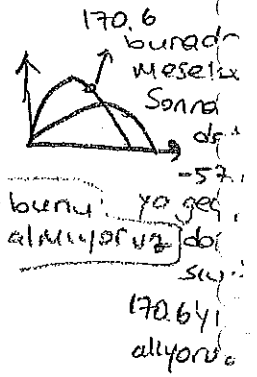 170.6
buradn
mesela
Sonra
-57.
bunu yo geç
almıyoruz doi
170.6'yı
alıyoru